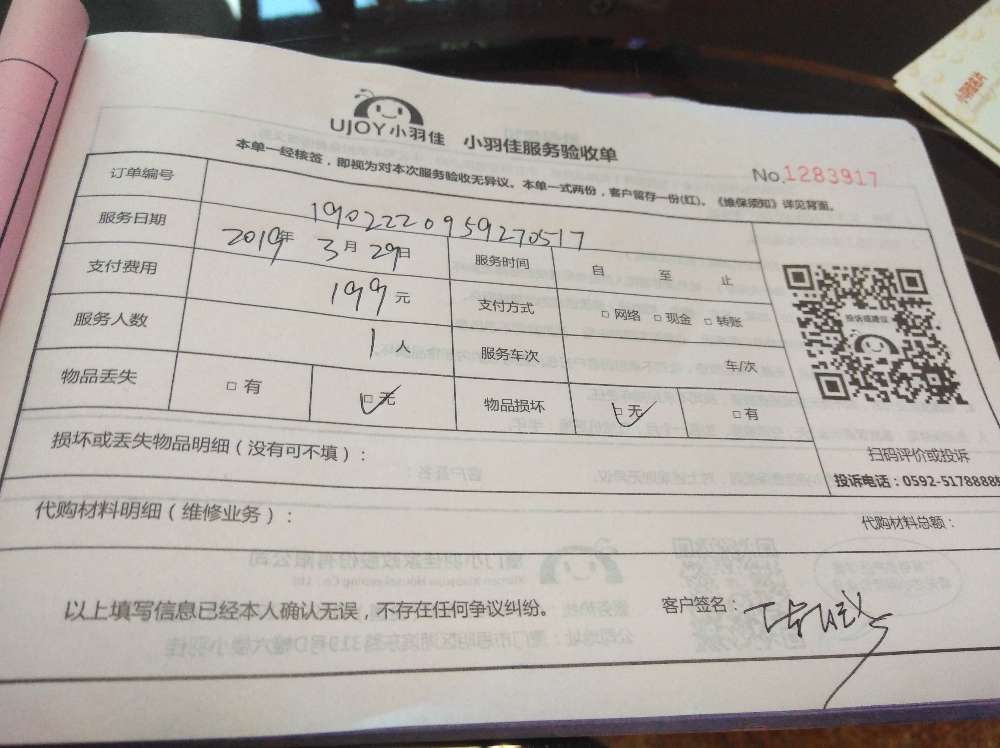 UJOY小羽佳 小羽佳服务验收单
本单一经核签，即视为对本次服务验收无异议。本单一式两份，客户留存一份(红)。《维保须知》详见背面。
No.1283917
订单编号 19022220959270517
服务日期 2019年 3月29日 服务时间 自 至 止
支付费用 199元 支付方式 □网络 □现金 □转账
服务人数 1人 服务车次 车/次
物品丢失 □有 □无 物品损坏 □无 □有
投诉或建议
扫码评价或投诉
投诉电话：0592-5178888
损坏或丢失物品明细（没有可不填）：
代购材料明细（维修业务）： 代购材料总额：
以上填写信息已经本人确认无误，不存在任何争议纠纷。 客户签名：